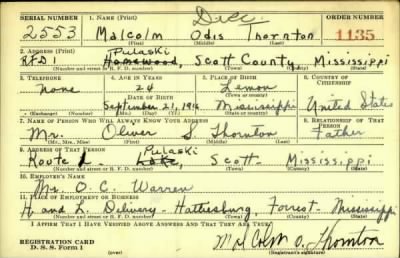 SERIAL NUMBER 1. NAME (Print) ORDER NUMBER
2553 Malcolm Odis Thornton 1135
(First) (Middle) (Last)
2. ADDRESS (Print) Pulaski
RFD 1 Homewood, Scott County Mississippi
3. TELEPHONE 4. AGE IN YEARS 5. PLACE OF BIRTH 6. COUNTRY OF CITIZENSHIP
none 24 Lemon
DATE OF BIRTH (Town or county)
September 21, 1916 Mississippi United States
(Exchange) (Number) (Mo.) (Day) (Yr.) (State or country)
7. NAME OF PERSON WHO WILL ALWAYS KNOW YOUR ADDRESS 8. RELATIONSHIP OF THAT PERSON
Mr. Oliver S Thornton Father
(Mr., Mrs., Miss) (First) (Middle) (Last)
9. ADDRESS OF THAT PERSON Pulaski
Route 1 Lake, Scott Mississippi
(Number and street or R. F. D. number) (Town) (County) (State)
10. EMPLOYER'S NAME
Mr. O. C. Warren
11. PLACE OF EMPLOYMENT OR BUSINESS
H and L Delivery - Hattiesburg, Forrest - Mississippi
(Number and street or R. F. D. number) (Town) (County) (State)
I AFFIRM THAT I HAVE VERIFIED ABOVE ANSWERS AND THAT THEY ARE TRUE.
REGISTRATION CARD
D. S. S. Form 1 Malcolm O. Thornton